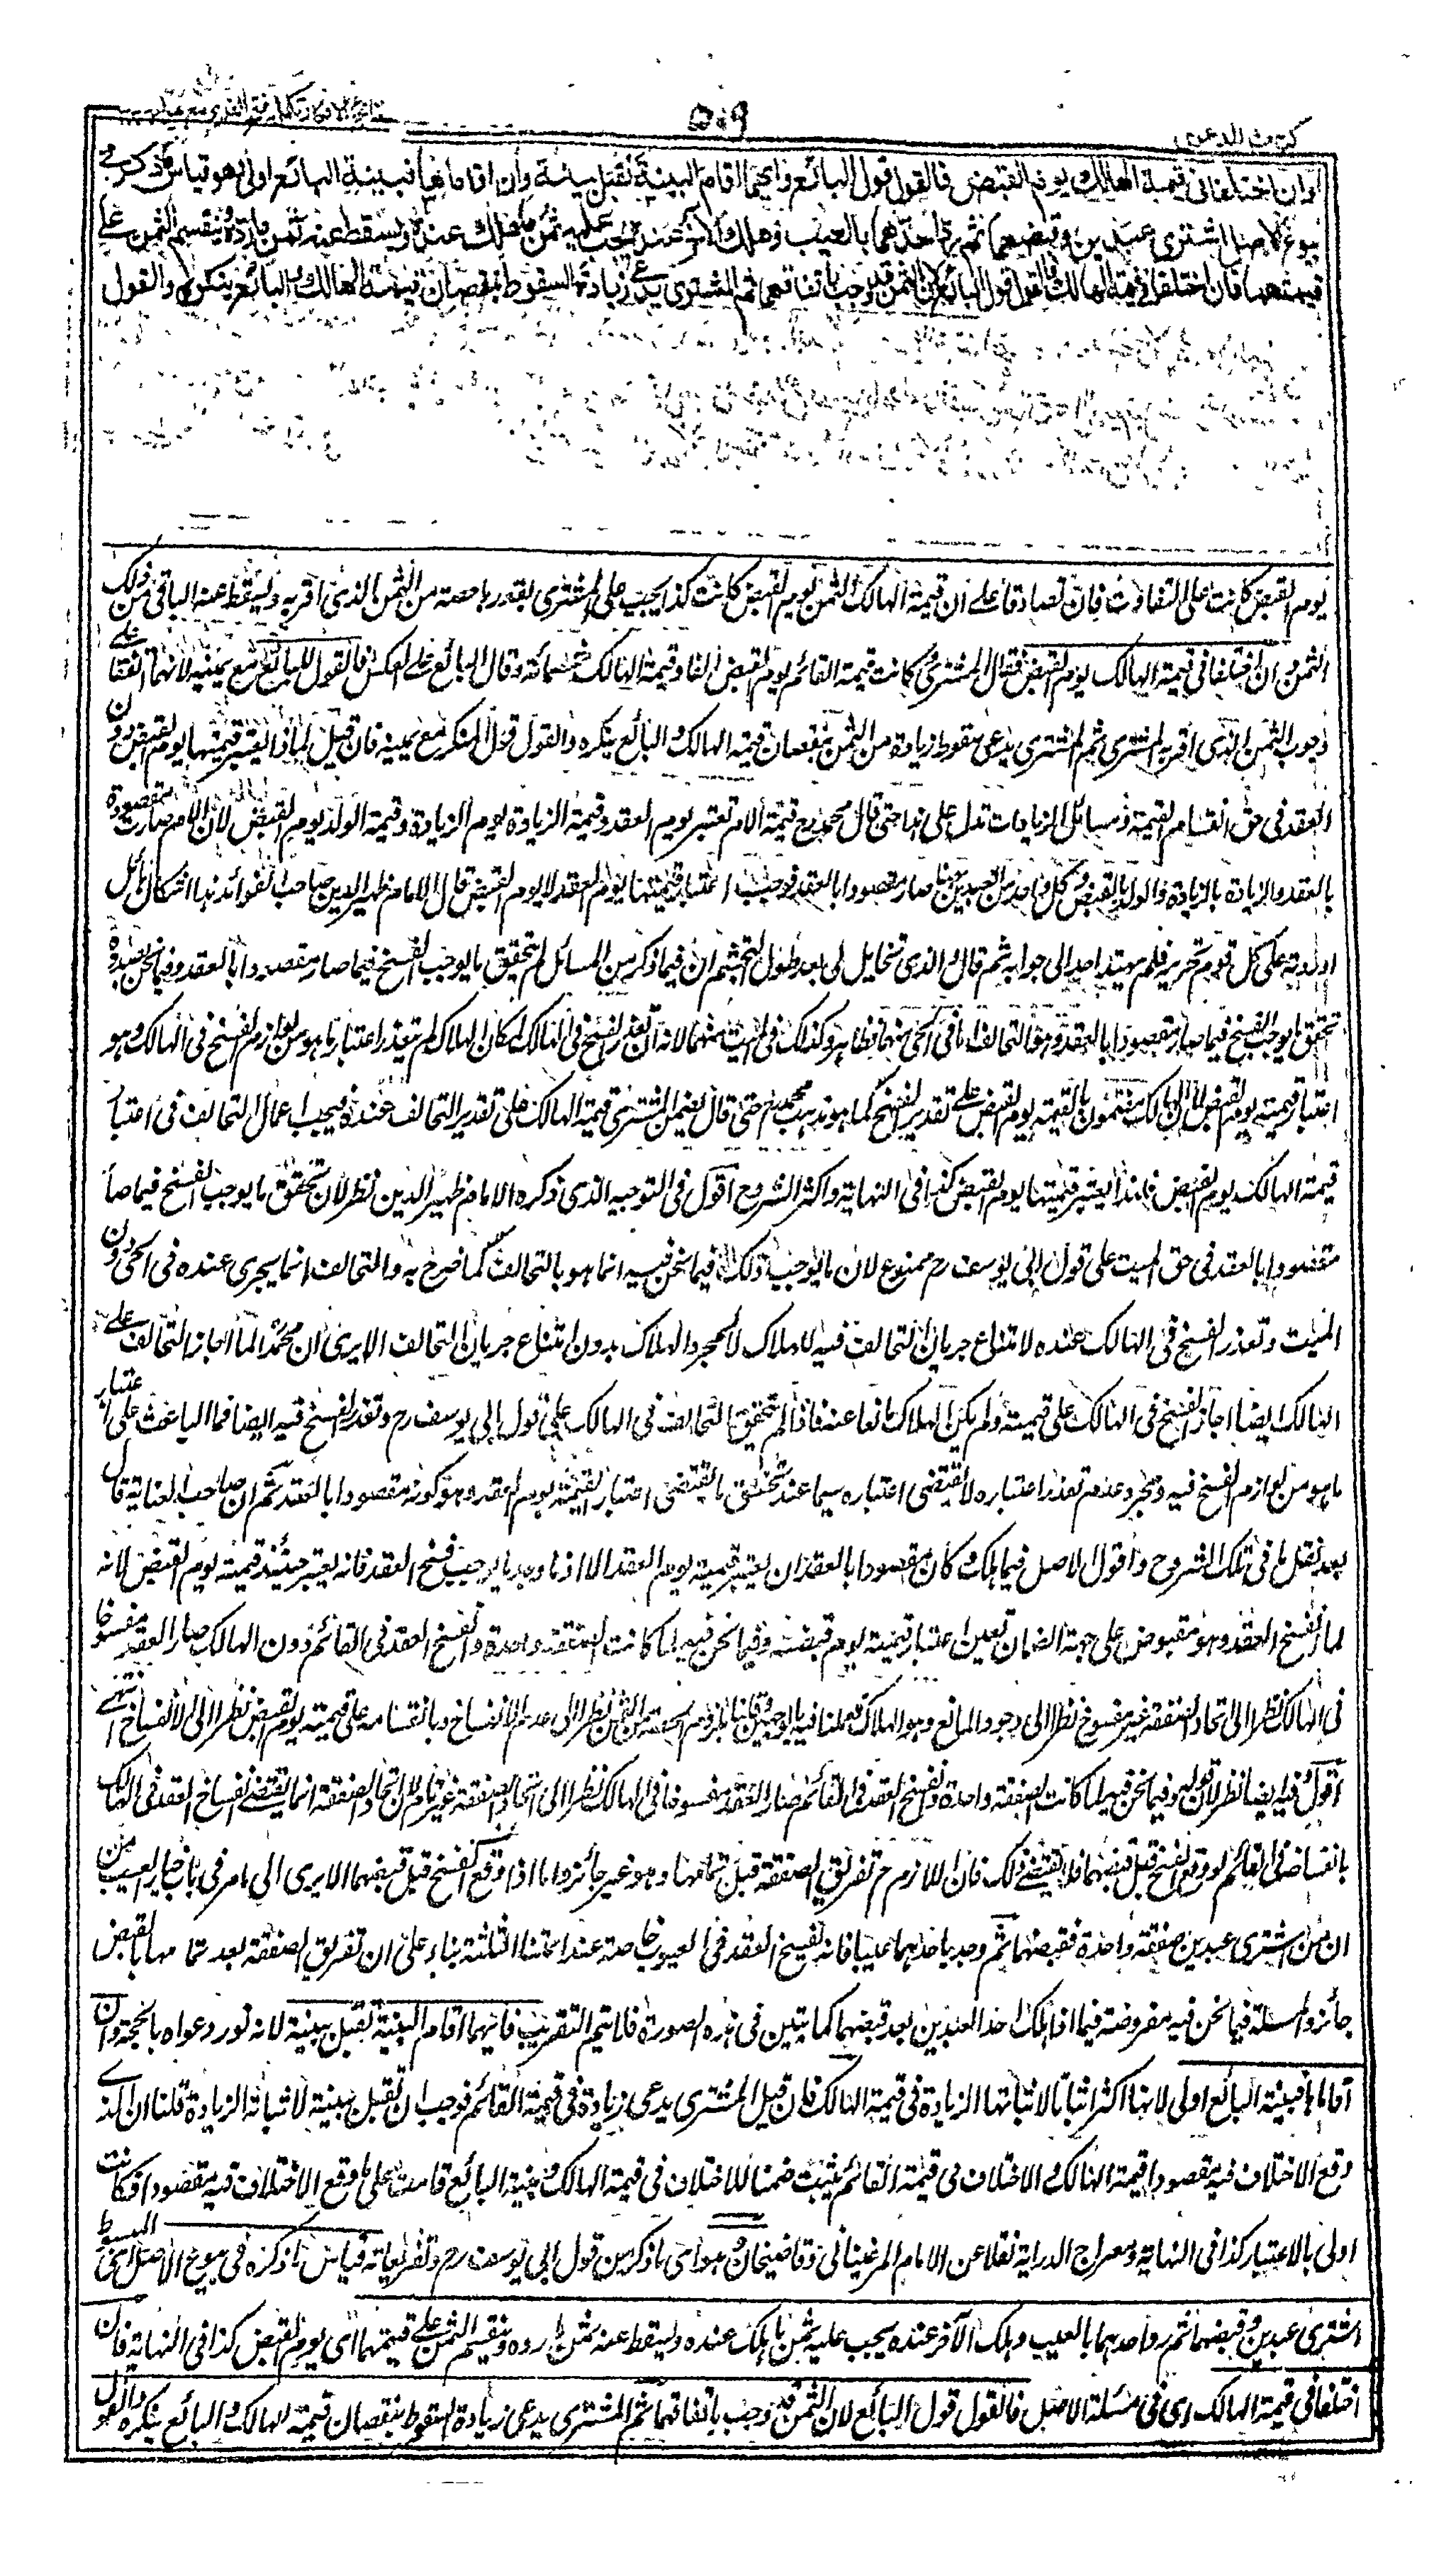 ٥٠٩
كتاب الدعوى
وان اختلفا في قيمة الهالك يوم القبض فالقول قول البائع وايهما اقام البينة تقبل بينته وان اقاماها فبينة البائع اولى وهو قياس ما ذكر في
بيوع الاصل اشترى عبدين وقبضهما ثم رد احدهما بالعيب وهلك الآخر عنده يجب عليه ثمن ما هلك عنده ويسقط عنه ثمن ما رده وينقسم الثمن على
قيمتهما فان اختلفا في قيمة الهالك فالقول قول البائع لان الثمن قد وجب باتفاقهما ثم المشترى يدعى زيادة السقوط بنقصان قيمة الهالك والبائع ينكره والقول
يوم القبض كانت على التفاوت فان تصادقا على ان قيمة الهالك يوم القبض كانت كذا يجب على المشترى بقدر ما حصته من الثمن الذى اقر به ويسقط عنه الباقى من ذلك
الثمن وان اختلفا في قيمة الهالك يوم القبض فقال المشترى كانت قيمة القائم يوم القبض الفا وقيمة الهالك خمسمائة وقال البائع على العكس فالقول للبائع مع يمينه لانهما اتفقا على
وجوب الثمن الذى اقر به المشترى ثم المشترى يدعى سقوط زيادة من الثمن بنقصان قيمة الهالك والبائع ينكره والقول قول المنكر مع يمينه فان قيل لماذا يعتبر قيمتها يوم القبض دون
العقد فى حق انقسام القيمة ومسائل الزيادات تدل على هذا حتى قال محمد رح قيمة الام تعتبر يوم العقد وقيمة الزيادة يوم الزيادة وقيمة الولد يوم القبض لان الام صارت مقصودة
بالعقد والزيادة بالزيادة والولد بالقبض وكل واحد من العبدين هنا صار مقصودا بالعقد فوجب اعتبار قيمتها يوم العقد لا يوم القبض قال الامام ظهير الدين صاحب الفوائد هذا اشكال هائل
اوردته على كل قوم تحرير فلم يهتد احد الى جوابه ثم قال والذى تخايل لى بعد طول التجشم ان فيما ذكر من المسائل لم يتحقق ما يوجب الفسخ فيما صار مقصودا بالعقد وفيما نحن بصدده
تحقق ما يوجب الفسخ فيما صار مقصودا بالعقد وهو التحالف اما فى الحى منهما فظاهر وكذلك فى الميت منهما لانه ان تعذر الفسخ فى الهالك لمكان الهلاك لم يتعذر اعتبار ما هو من لوازم الفسخ فى الهالك وهو
اعتبار قيمته يوم القبض لان الهالك مضمون بالقيمة يوم القبض على تقدير الفسخ كما هو مذهب محمد رح حتى قال يضمن المشترى قيمة الهالك على تقدير التحالف عنده فيجب اعمال التحالف فى اعتبار
قيمة الهالك يوم القبض فلهذا يعتبر قيمتها يوم القبض كذا فى النهاية واكثر الشروح اقول فى التوجيه الذى ذكره الامام ظهير الدين نظر لان تحقق ما يوجب الفسخ فيما صار
مقصودا بالعقد فى حق الميت على قول ابى يوسف رح ممنوع لان ما يوجب ذلك فيما نحن فيه انما هو بالتحالف كما صرح به والتحالف انما يجرى عنده فى الحى دون
الميت وتعذر الفسخ فى الهالك عنده لامتناع جريان التحالف فيه للهلاك لا لمجرد الهلاك بدون امتناع جريان التحالف الا يرى ان محمدا لما اجاز التحالف على
الهالك ايضا اجاز الفسخ فى الهالك على قيمته ولم يكن الهلاك مانعا عنه فاذا لم يتحقق التحالف فى الهالك على قول ابى يوسف رح وتعذر الفسخ فيه ايضا فما الباعث على اعتبار
ما هو من لوازم الفسخ فيه ومجرد عدم تعذر اعتباره لا يقتضى اعتباره سيما عند تحقق ما يقتضى اعتبار القيمة يوم العقد وهو كونه مقصودا بالعقد ثم ان صاحب العناية قال
بعد نقل ما فى تلك الشروح واقول الاصل فيما هلك وكان مقصودا بالعقد ان يعتبر قيمته يوم العقد الا اذا وجد ما يوجب فسخ العقد فانه يعتبر حينئذ قيمته يوم القبض لانه
لما انفسخ العقد وهو مقبوض على جهة الضمان تعين اعتبار قيمته يوم قبضه وفيما نحن فيه لما كانت الصفقة واحدة وانفسخ العقد فى القائم دون الهالك صار العقد مفسوخا
فى الهالك نظرا الى اتحاد الصفقة غير مفسوخ نظرا الى وجود المانع وهو الهلاك فعملنا فيه بالوجهين وقلنا بلزوم الحصة من الثمن نظرا الى عدم الانفساخ وبانقسامه على قيمته يوم القبض نظرا الى الانفساخ انتهى
اقول وفيه ايضا نظر لان قوله وفيما نحن فيه لما كانت الصفقة واحدة وانفسخ العقد فى القائم صار العقد مفسوخا فى الهالك نظرا الى اتحاد الصفقة غير تام لان اتحاد الصفقة انما يقتضى انفساخ العقد فى الهالك
بانفساخه فى القائم لو وقع الفسخ قبل قبضهما فلا يقتضى ذلك فان اللازم ح تفريق الصفقة قبل تمامها وهو غير جائز واما اذا وقع الفسخ قبل قبضهما الا يرى الى ما مر فى باب خيار العيب من
ان من اشترى عبدين صفقة واحدة فقبضهما ثم وجد باحدهما عيبا فانه يفسخ العقد فى المعيوب خاصة عند ائمتنا الثلثة بناء على ان تفريق الصفقة بعد تمامها بالقبض
جائز والمسئلة فيما نحن فيه مفروضة فيما اذا هلك احد العبدين بعد قبضهما كما تبين فى هذه الصورة فلا يتم التقريب فايهما اقام البينة تقبل بينته لانه نور دعواه بالحجة وان
اقاماها فبينة البائع اولى لانها اكثر اثباتا لاثباتها الزيادة فى قيمة الهالك فان قيل المشترى يدعى زيادة فى قيمة القائم فوجب ان تقبل بينته لاثباته الزيادة قلنا ان الذى
وقع الاختلاف فيه مقصودا قيمة الهالك والاختلاف فى قيمة القائم يثبت ضمنا للاختلاف فى قيمة الهالك وبينة البائع قامت على ما وقع الاختلاف فيه مقصودا فكانت
اولى بالاعتبار كذا فى النهاية ومعراج الدراية نقلا عن الامام المرغينانى وقاضيخان وهو اى ما ذكر من قول ابى يوسف رح وتفريعاته قياس ما ذكره فى بيوع الاصل اى المبسوط
اشترى عبدين وقبضهما ثم رد احدهما بالعيب وهلك الآخر عنده يجب عليه ثمن ما هلك عنده ويسقط عنه ثمن ما رده وينقسم الثمن على قيمتهما اى يوم القبض كذا فى النهاية فان
اختلفا فى قيمة الهالك اى فى مسئلة الاصل فالقول قول البائع لان الثمن قد وجب باتفاقهما ثم المشترى يدعى زيادة السقوط بنقصان قيمة الهالك والبائع ينكره والقول